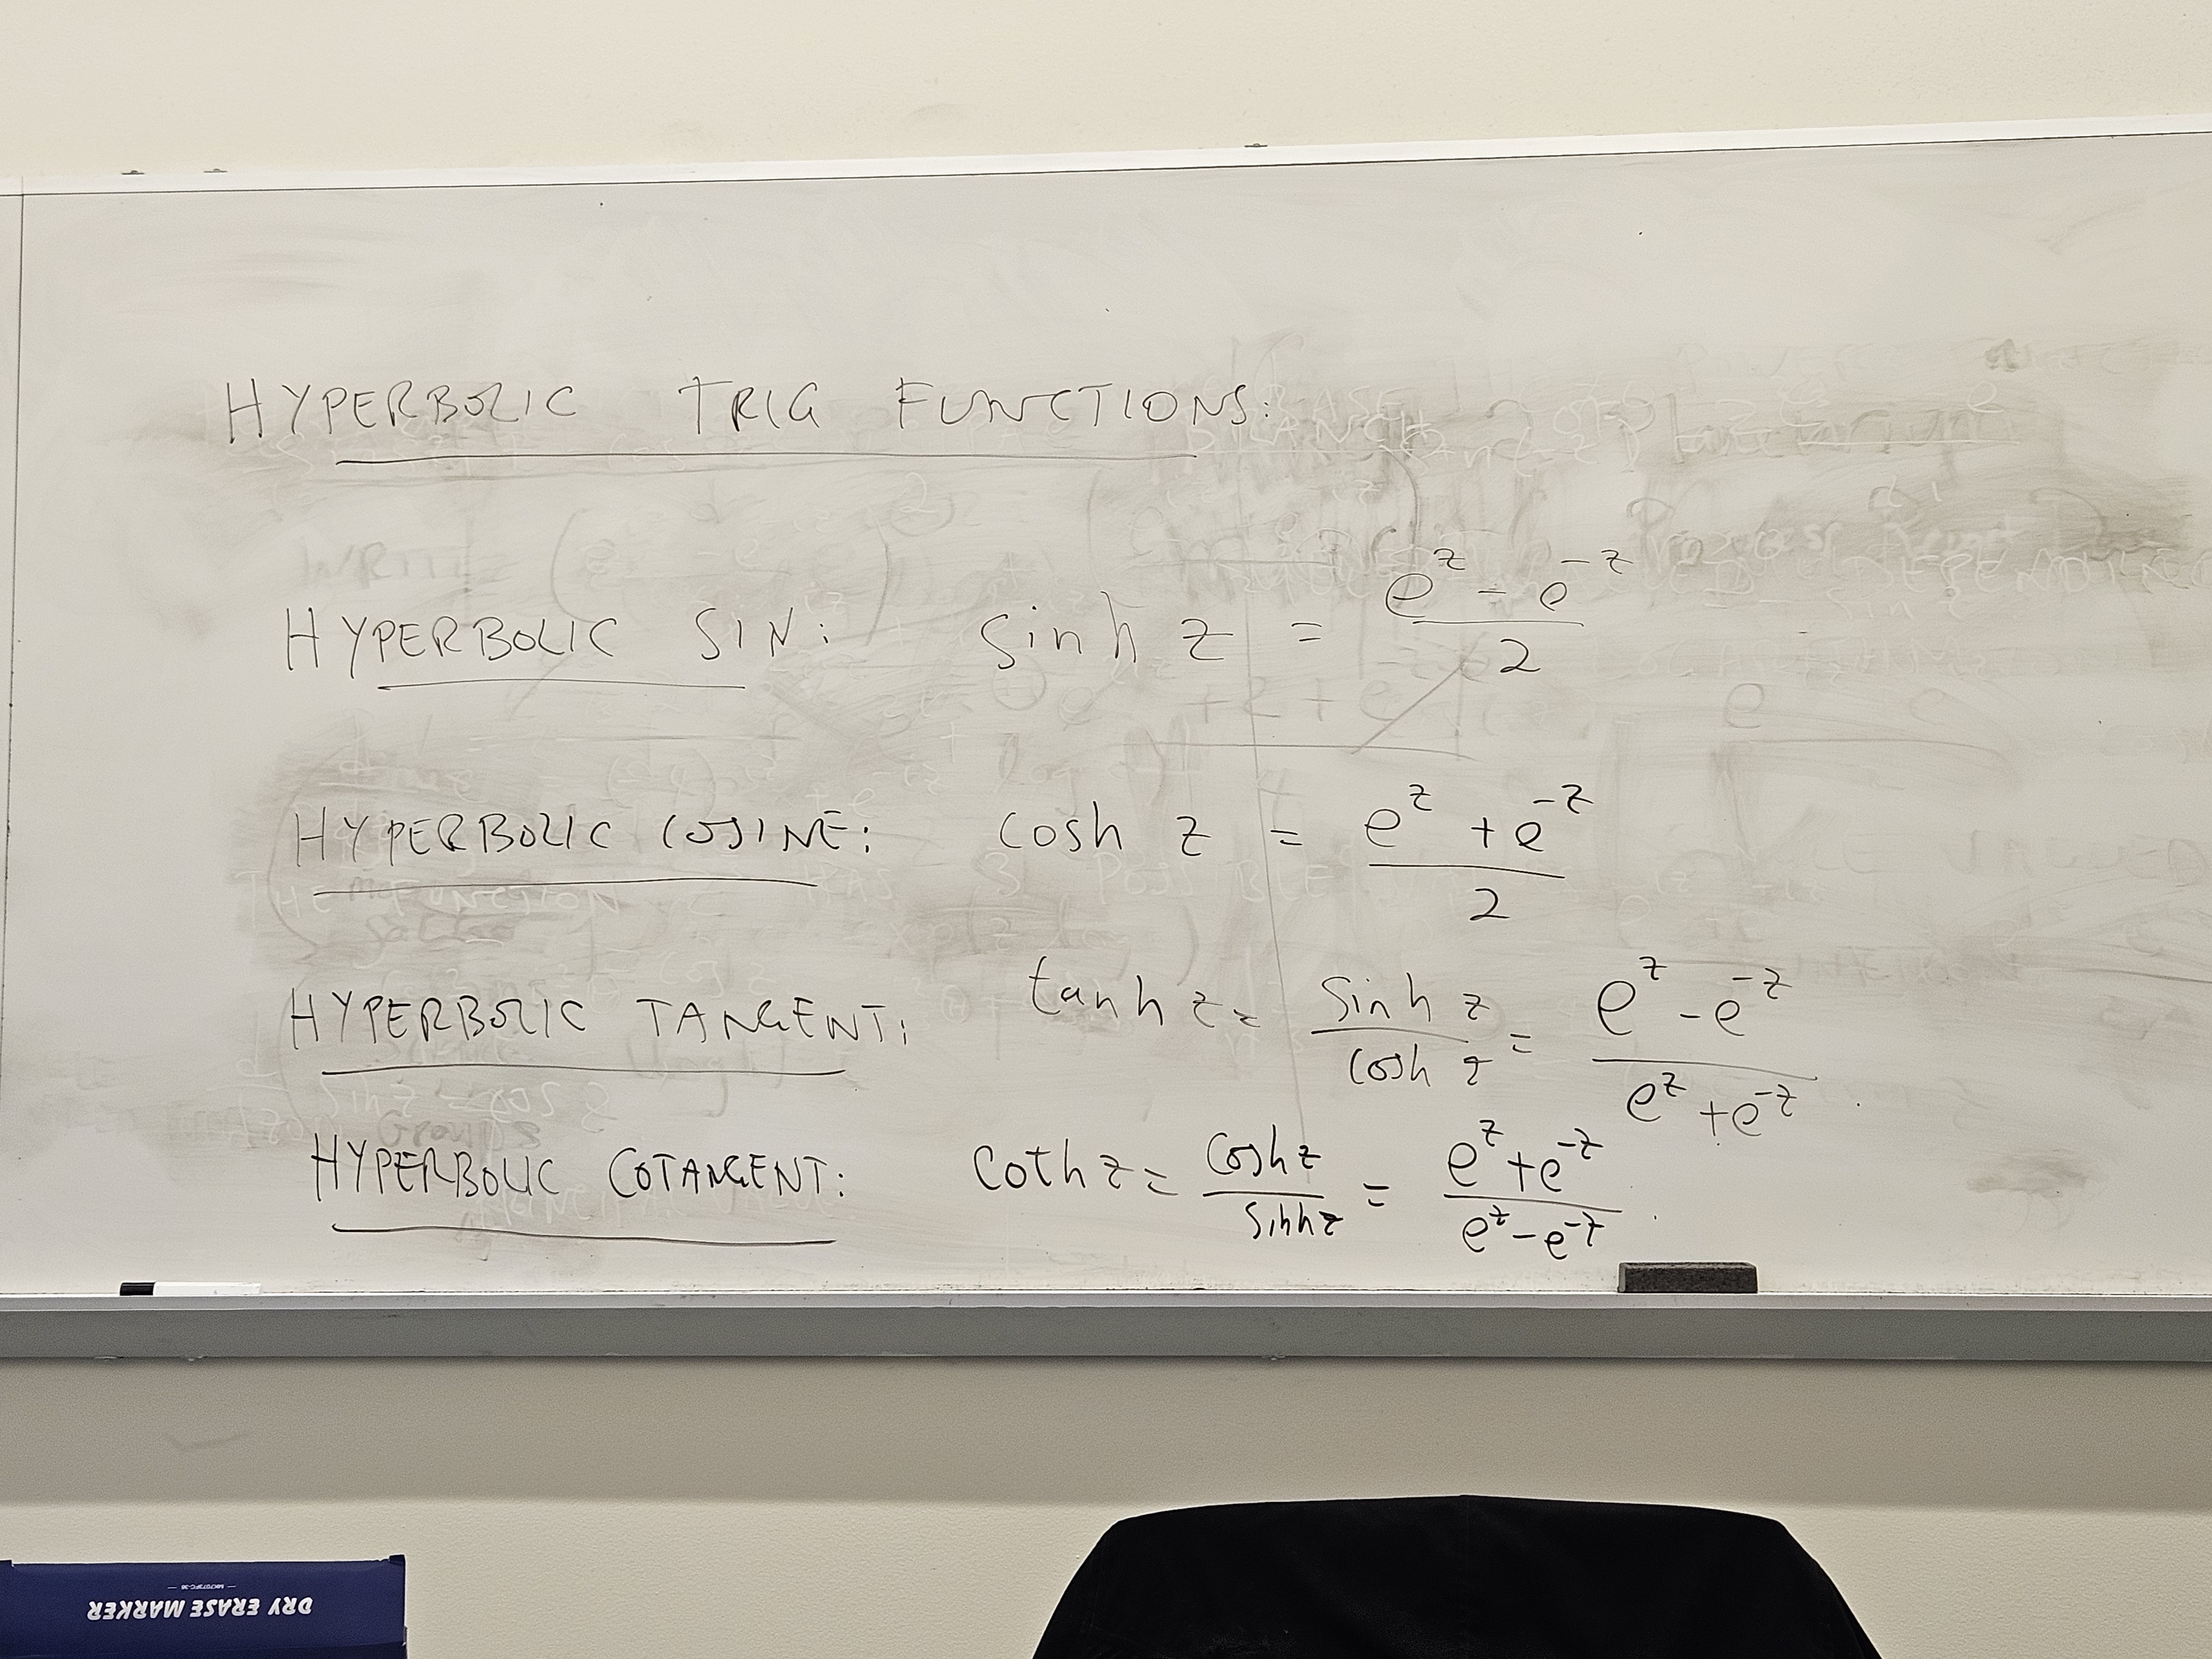 HYPERBOLIC TRIG FUNCTIONS:
HYPERBOLIC SIN: sinh z = (e^z - e^-z)/2
HYPERBOLIC COSINE: cosh z = (e^z + e^-z)/2
HYPERBOLIC TANGENT: tanh z = sinh z / cosh z = (e^z - e^-z)/(e^z + e^-z).
HYPERBOLIC COTANGENT: coth z = cosh z / sinh z = (e^z + e^-z)/(e^z - e^-z).
DRY ERASE MARKER